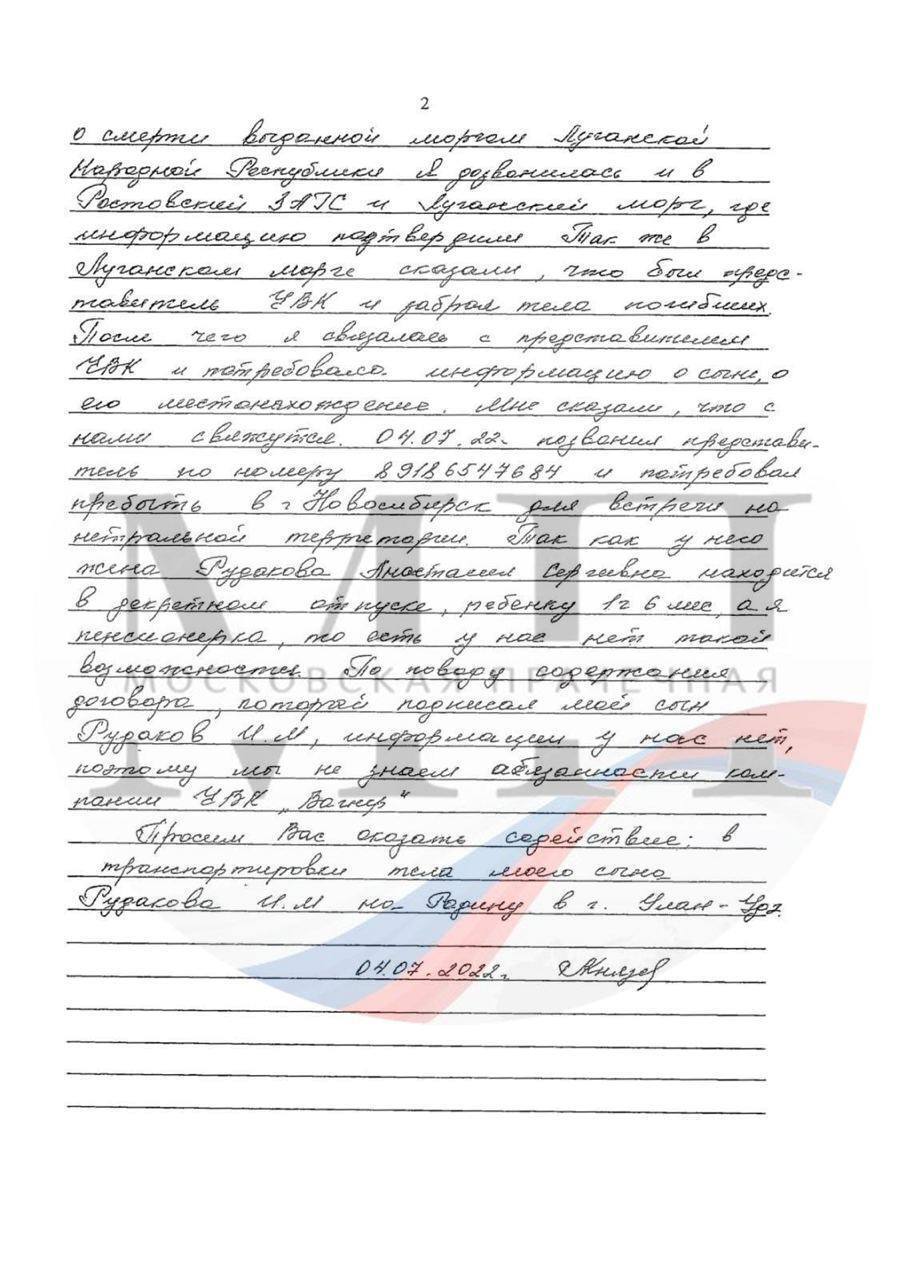 2
о смерти выданной моргом Луганской
Народной Республики Я дозвонилась и в
Ростовский ЗАГС и Луганский морг, где
информацию подтвердили Так же в
Луганском морге сказали, что был предс-
тавитель ЧВК и забрал тела погибших.
После чего я связалась с представителем
ЧВК и потребовала информацию о сыне, о
его местонахождение. Мне сказали, что с
нами свяжутся. 04.07.22г. позвонил представи-
тель по номеру 89186547684 и потребовал
пребыть в г Новосибирск для встречи на
нетральной территории. Так как у него
жена Рудакова Анастасия Сергеевна находится
в декретном отпуске, ребенку 1г 6 мес, а я
пенсионерка, то есть у нас нет такой
возможности. По поводу содержания
договора, который подписал мой сын
Рудаков И.М, информации у нас нет,
поэтому мы не знаем обязанности ком-
пании ЧВК „Вагнер"
Просим Вас оказать содействие: в
транспортировки тела моего сына
Рудакова И.М на Родину в г. Улан-Удэ.
04.07.2022г.
МП
МОСКОВСКАЯ ПРАЧЕЧНАЯ